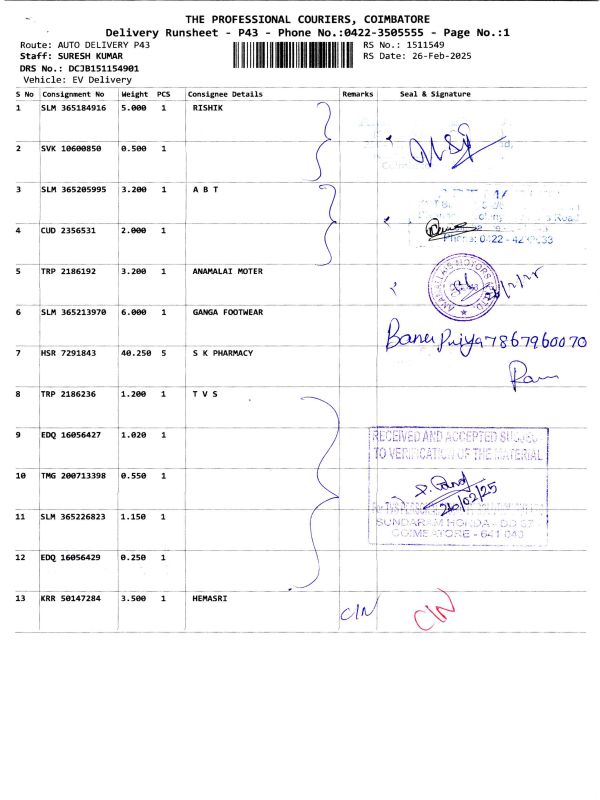 THE PROFESSIONAL COURIERS, COIMBATORE
Delivery Runsheet - P43 - Phone No.:0422-3505555 - Page No.:1
Route: AUTO DELIVERY P43 RS No.: 1511549
Staff: SURESH KUMAR RS Date: 26-Feb-2025
DRS No.: DCJB151154901
Vehicle: EV Delivery
S No Consignment No Weight PCS Consignee Details Remarks Seal & Signature
1 SLM 365184916 5.000 1 RISHIK
2 SVK 10600850 0.500 1
3 SLM 365205995 3.200 1 A B T
4 CUD 2356531 2.000 1
Road
5 TRP 2186192 3.200 1 ANAMALAI MOTER
6 SLM 365213970 6.000 1 GANGA FOOTWEAR
Priya 7867960070
7 HSR 7291843 40.250 5 S K PHARMACY
8 TRP 2186236 1.200 1 T V S
9 EDQ 16056427 1.020 1
RECEIVED AND ACCEPTED SUBJECT
TO VERIFICATION OF THE MATERIAL
10 TMG 200713398 0.550 1
26/02/25
11 SLM 365226823 1.150 1
SUNDARAM HONDA
COIMBATORE - 641
12 EDQ 16056429 0.250 1
13 KRR 50147284 3.500 1 HEMASRI C/N C/N